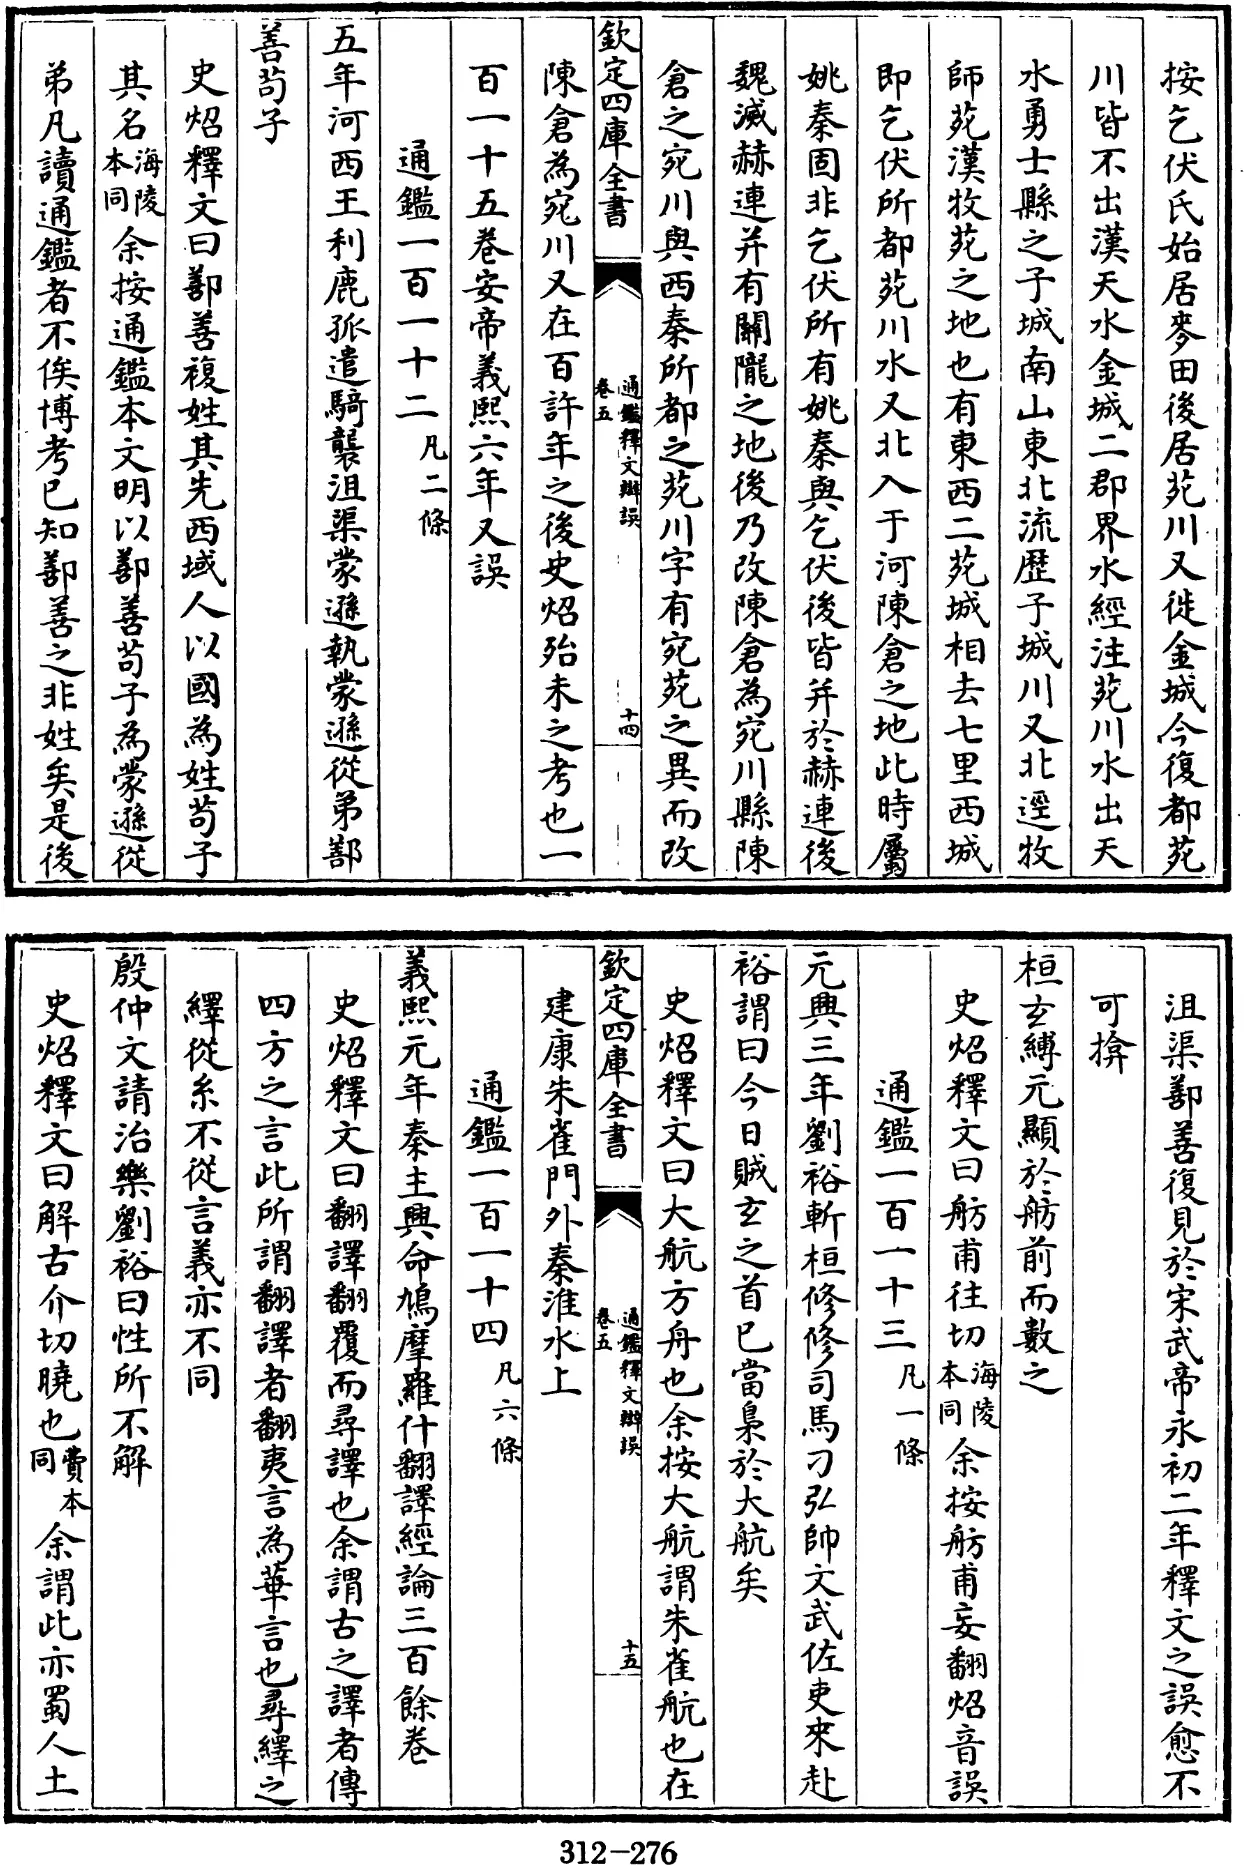 按乞伏氏始居麥田後居苑川又徙金城今復都苑
川皆不出漢天水金城二郡界水經注苑川水出天
水勇士縣之子城南山東北流歷子城川又北逕牧
師苑漢牧苑之地也有東西二苑城相去七里西城
即乞伏所都苑川水又北入于河陳倉之地此時屬
姚秦固非乞伏所有姚秦與乞伏後皆并於赫連後
魏滅赫連并有關隴之地後乃改陳倉為宛川縣陳
倉之宛川與西秦所都之苑川字有宛苑之異而改
欽定四庫全書
通鑑釋文辯誤
卷五
十四
陳倉為宛川又在百許年之後史炤殆未之考也一
百一十五卷安帝義熙六年又誤
通鑑一百一十二 凡二條
五年河西王利鹿孤遣騎襲沮渠蒙遜執蒙遜從弟鄯
善苟子
史炤釋文曰鄯善複姓其先西域人以國為姓苟子
其名海陵本同余按通鑑本文明以鄯善苟子為蒙遜從
弟凡讀通鑑者不俟博考已知鄯善之非姓矣是後
沮渠鄯善復見於宋武帝永初二年釋文之誤愈不
可揜
桓玄縛元顯於舫前而數之
史炤釋文曰舫甫往切海陵本同余按舫甫妄翻炤音誤
通鑑一百一十三 凡一條
元興三年劉裕斬桓修修司馬刁弘帥文武佐吏來赴
裕謂曰今日賊玄之首已當梟於大航矣
史炤釋文曰大航方舟也余按大航謂朱雀航也在
欽定四庫全書
通鑑釋文辯誤
卷五
十五
建康朱雀門外秦淮水上
通鑑一百一十四 凡六條
義熙元年秦主興命鳩摩羅什翻譯經論三百餘卷
史炤釋文曰翻譯翻覆而尋譯也余謂古之譯者傳
四方之言此所謂翻譯者翻夷言為華言也尋繹之
繹從糸不從言義亦不同
殷仲文請治樂劉裕曰性所不解
史炤釋文曰解古介切曉也費本同余謂此亦蜀人土
312-276